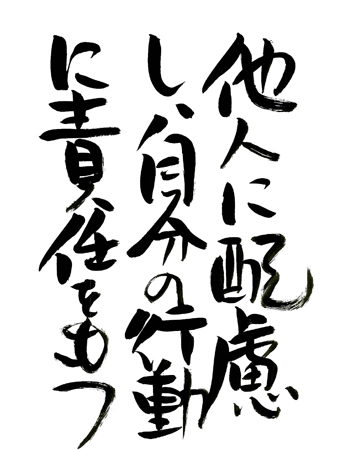 他人に配慮
し、自分の行動
に責任をもつ